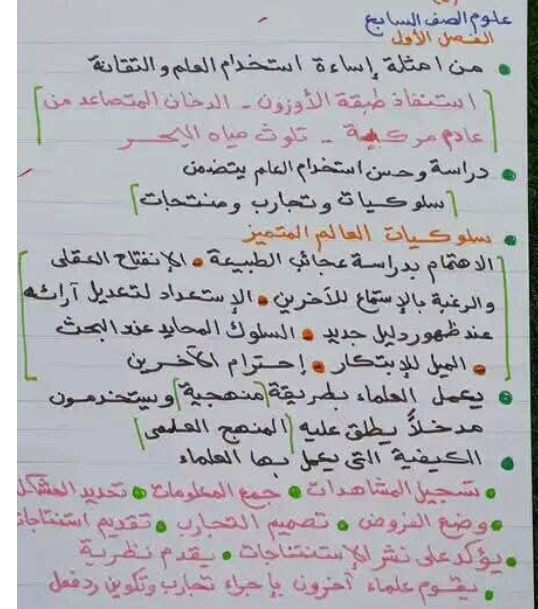 علوم الصف السابع
الفصل الأول
من امثلة إساءة استخدام العلم والتقانة
[استنفاذ طبقة الأوزون - الدخان المتصاعد من
عادم مركبة - تلوث مياه البحر]
دراسة وحسن استخدام العلم يتضمن
[سلوكيات وتجارب ومنتجات]
سلوكيات العالم المتميز
[الاهتمام بدراسة عجائب الطبيعة • الانفتاح العقلي
والرغبة بالإستماع للآخرين • الإستعداد لتعديل آرائه
عند ظهور دليل جديد • السلوك المحايد عند البحث
• الميل للإبتكار • إحترام الآخرين]
يعمل العلماء بطريقة [منهجية] ويستخدمون
مدخلاً يطلق عليه [المنهج العلمي]
الكيفية التي يعمل بها العلماء
• تسجيل المشاهدات • جمع المعلومات • تحديد المشاكل
• وضع الفروض • تصميم التجارب • تقديم استنتاجات
• يؤكد على نشر الإستنتاجات • يقدم نظرية
• يقوم علماء آخرون بإجراء تجارب وتكوين رد فعل